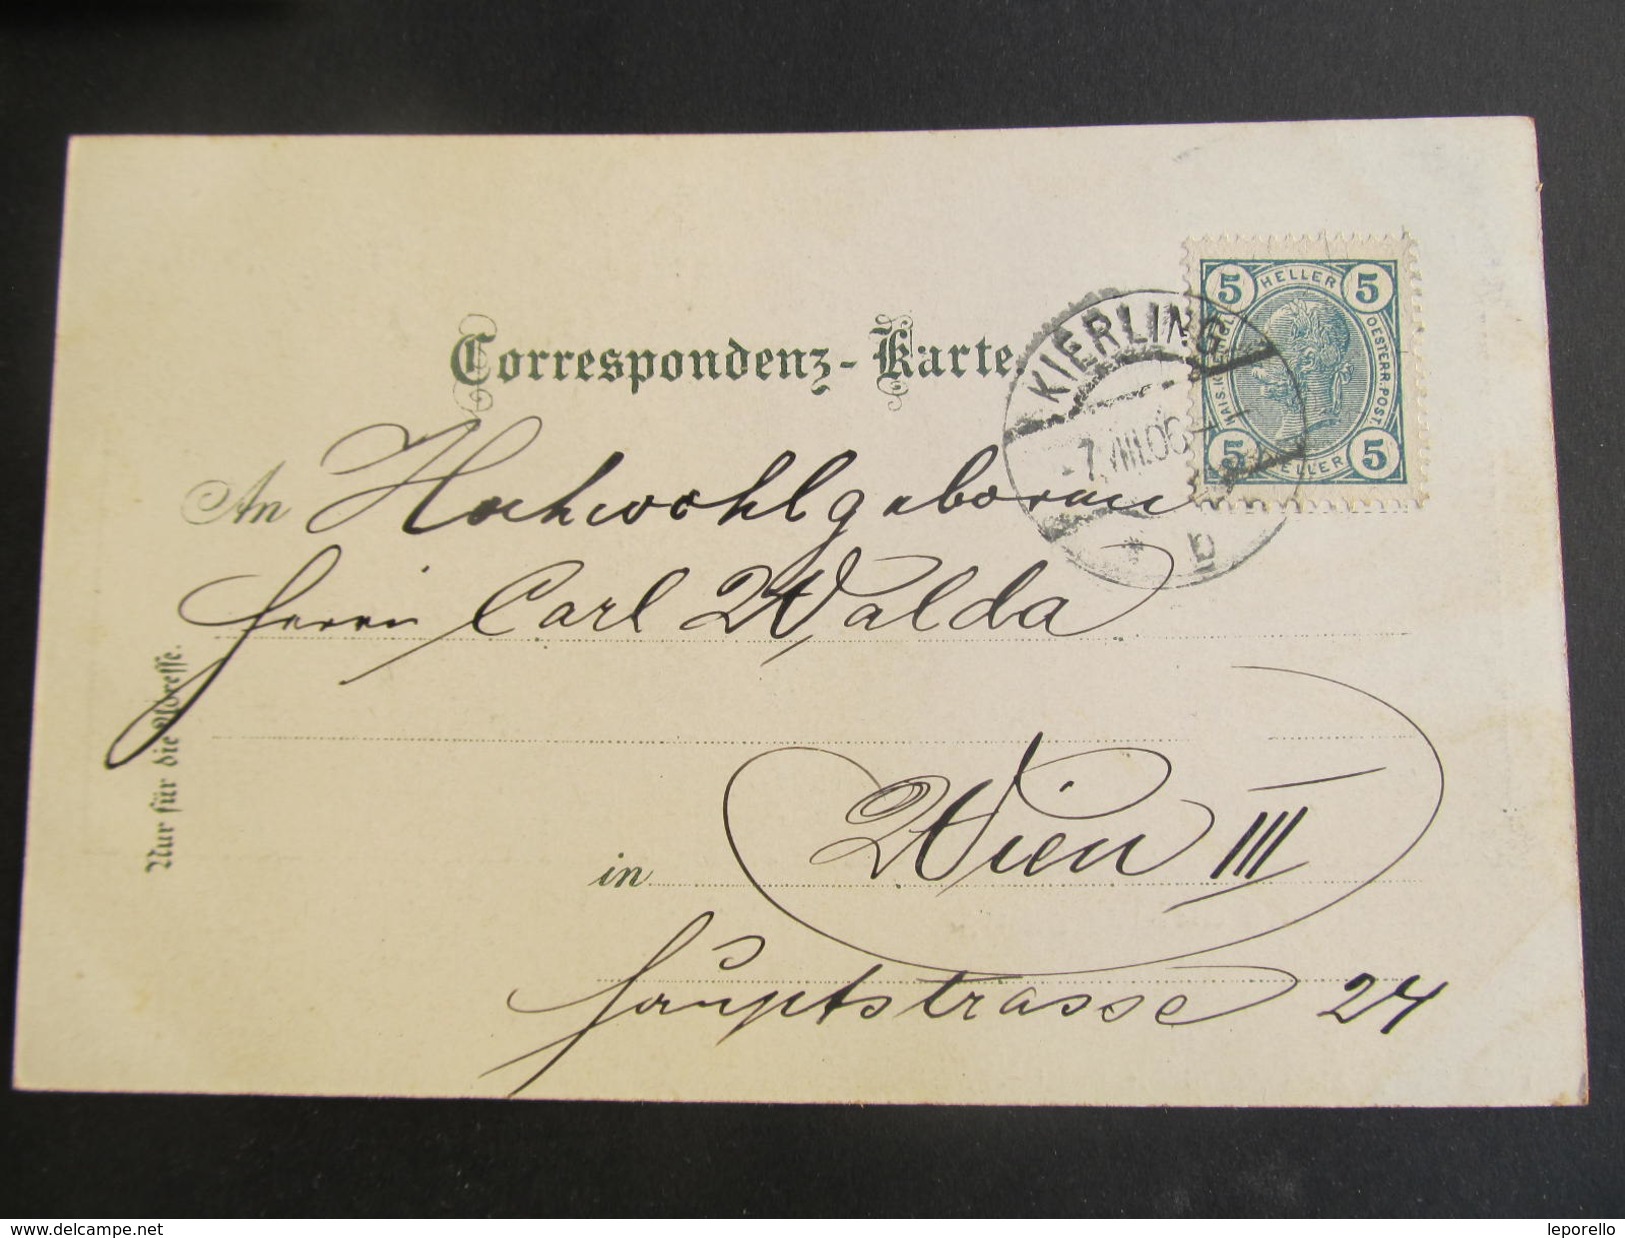 Correspondenz-Karte.
5 HELLER 5
OESTERR. POST
5 HELLER 5
KIERLING
-7.VIII.06
* b
An Hochwohlgeboren
Herrn Carl Walda
in Wien III
Hauptstrasse 24
Nur für die Adresse.
www.delcampe.net
leporello